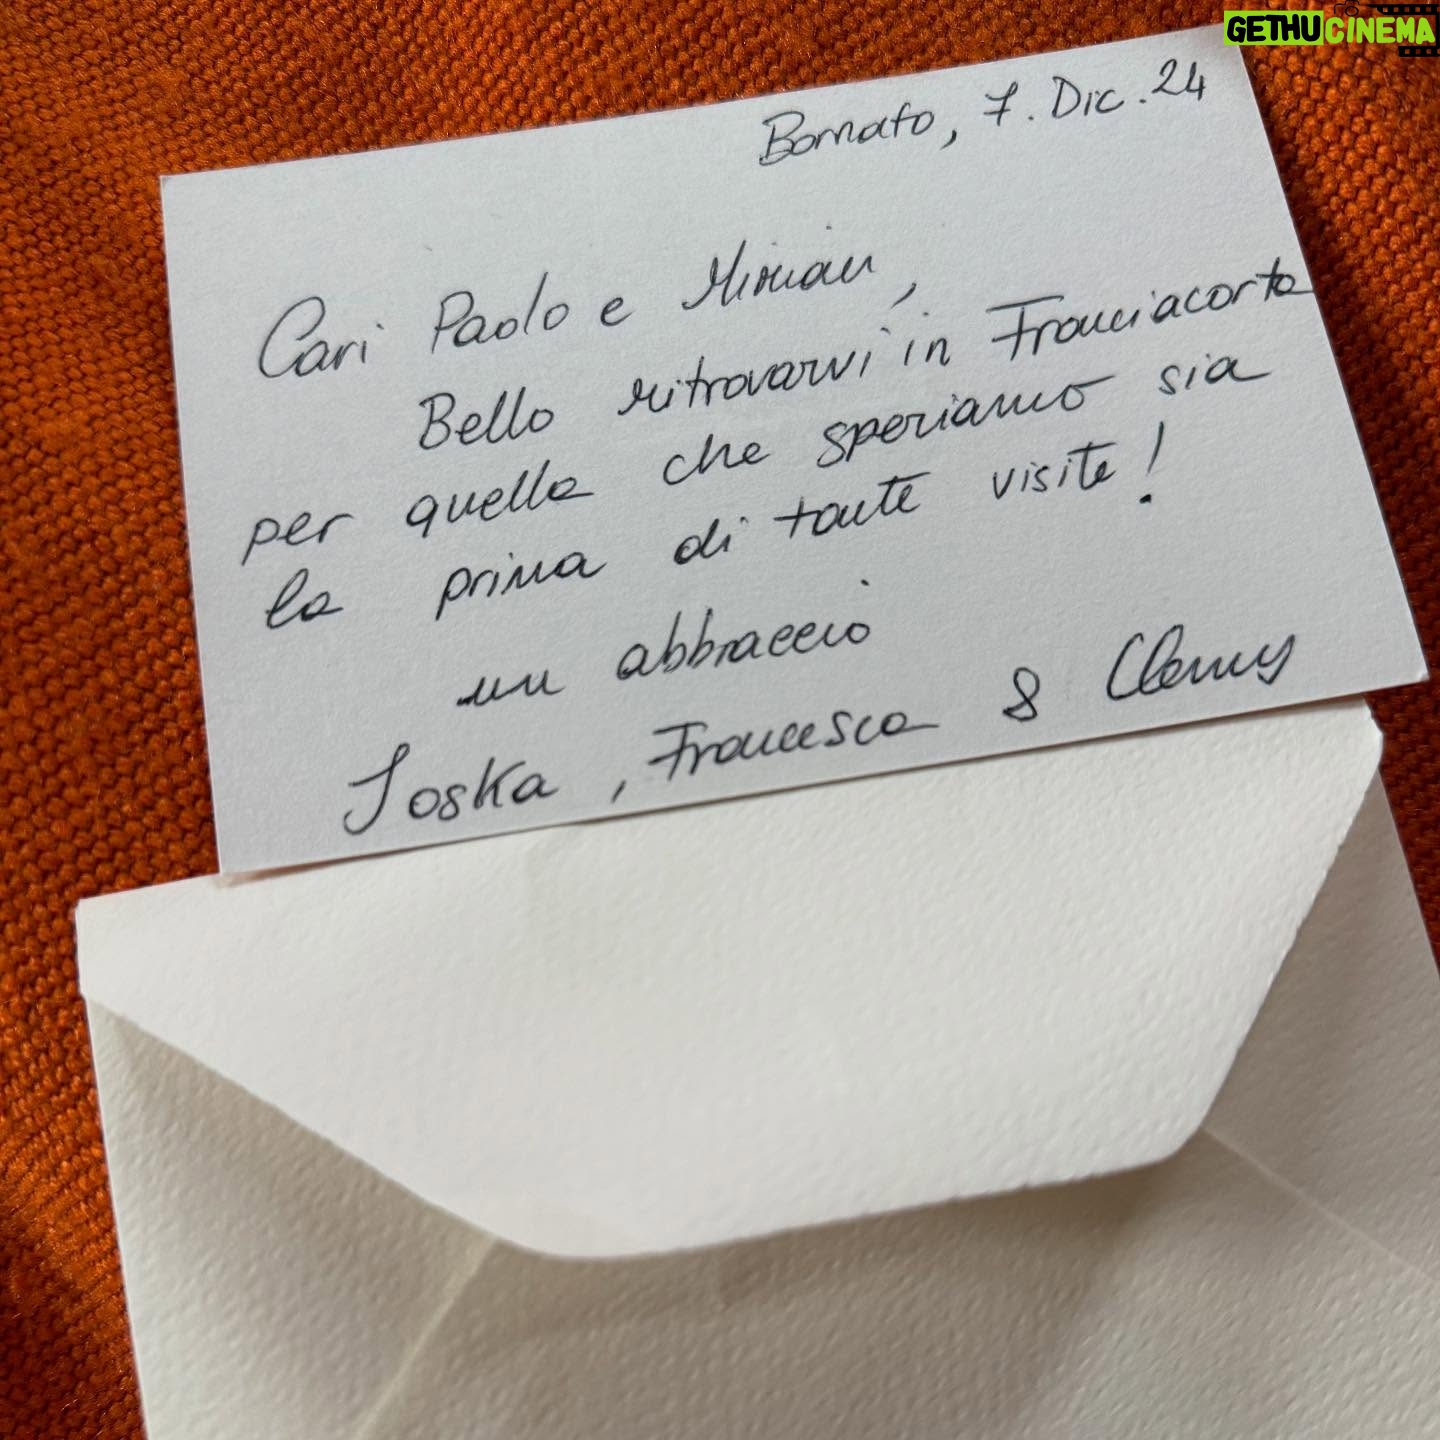 GETHUCINEMA
Bornato, 7. Dic. 24
Cari Paolo e Miriam,
Bello ritrovarvi in Franciacorta
per quella che speriamo sia
la prima di tante visite!
un abbraccio
Joska, Francesca & Clemy